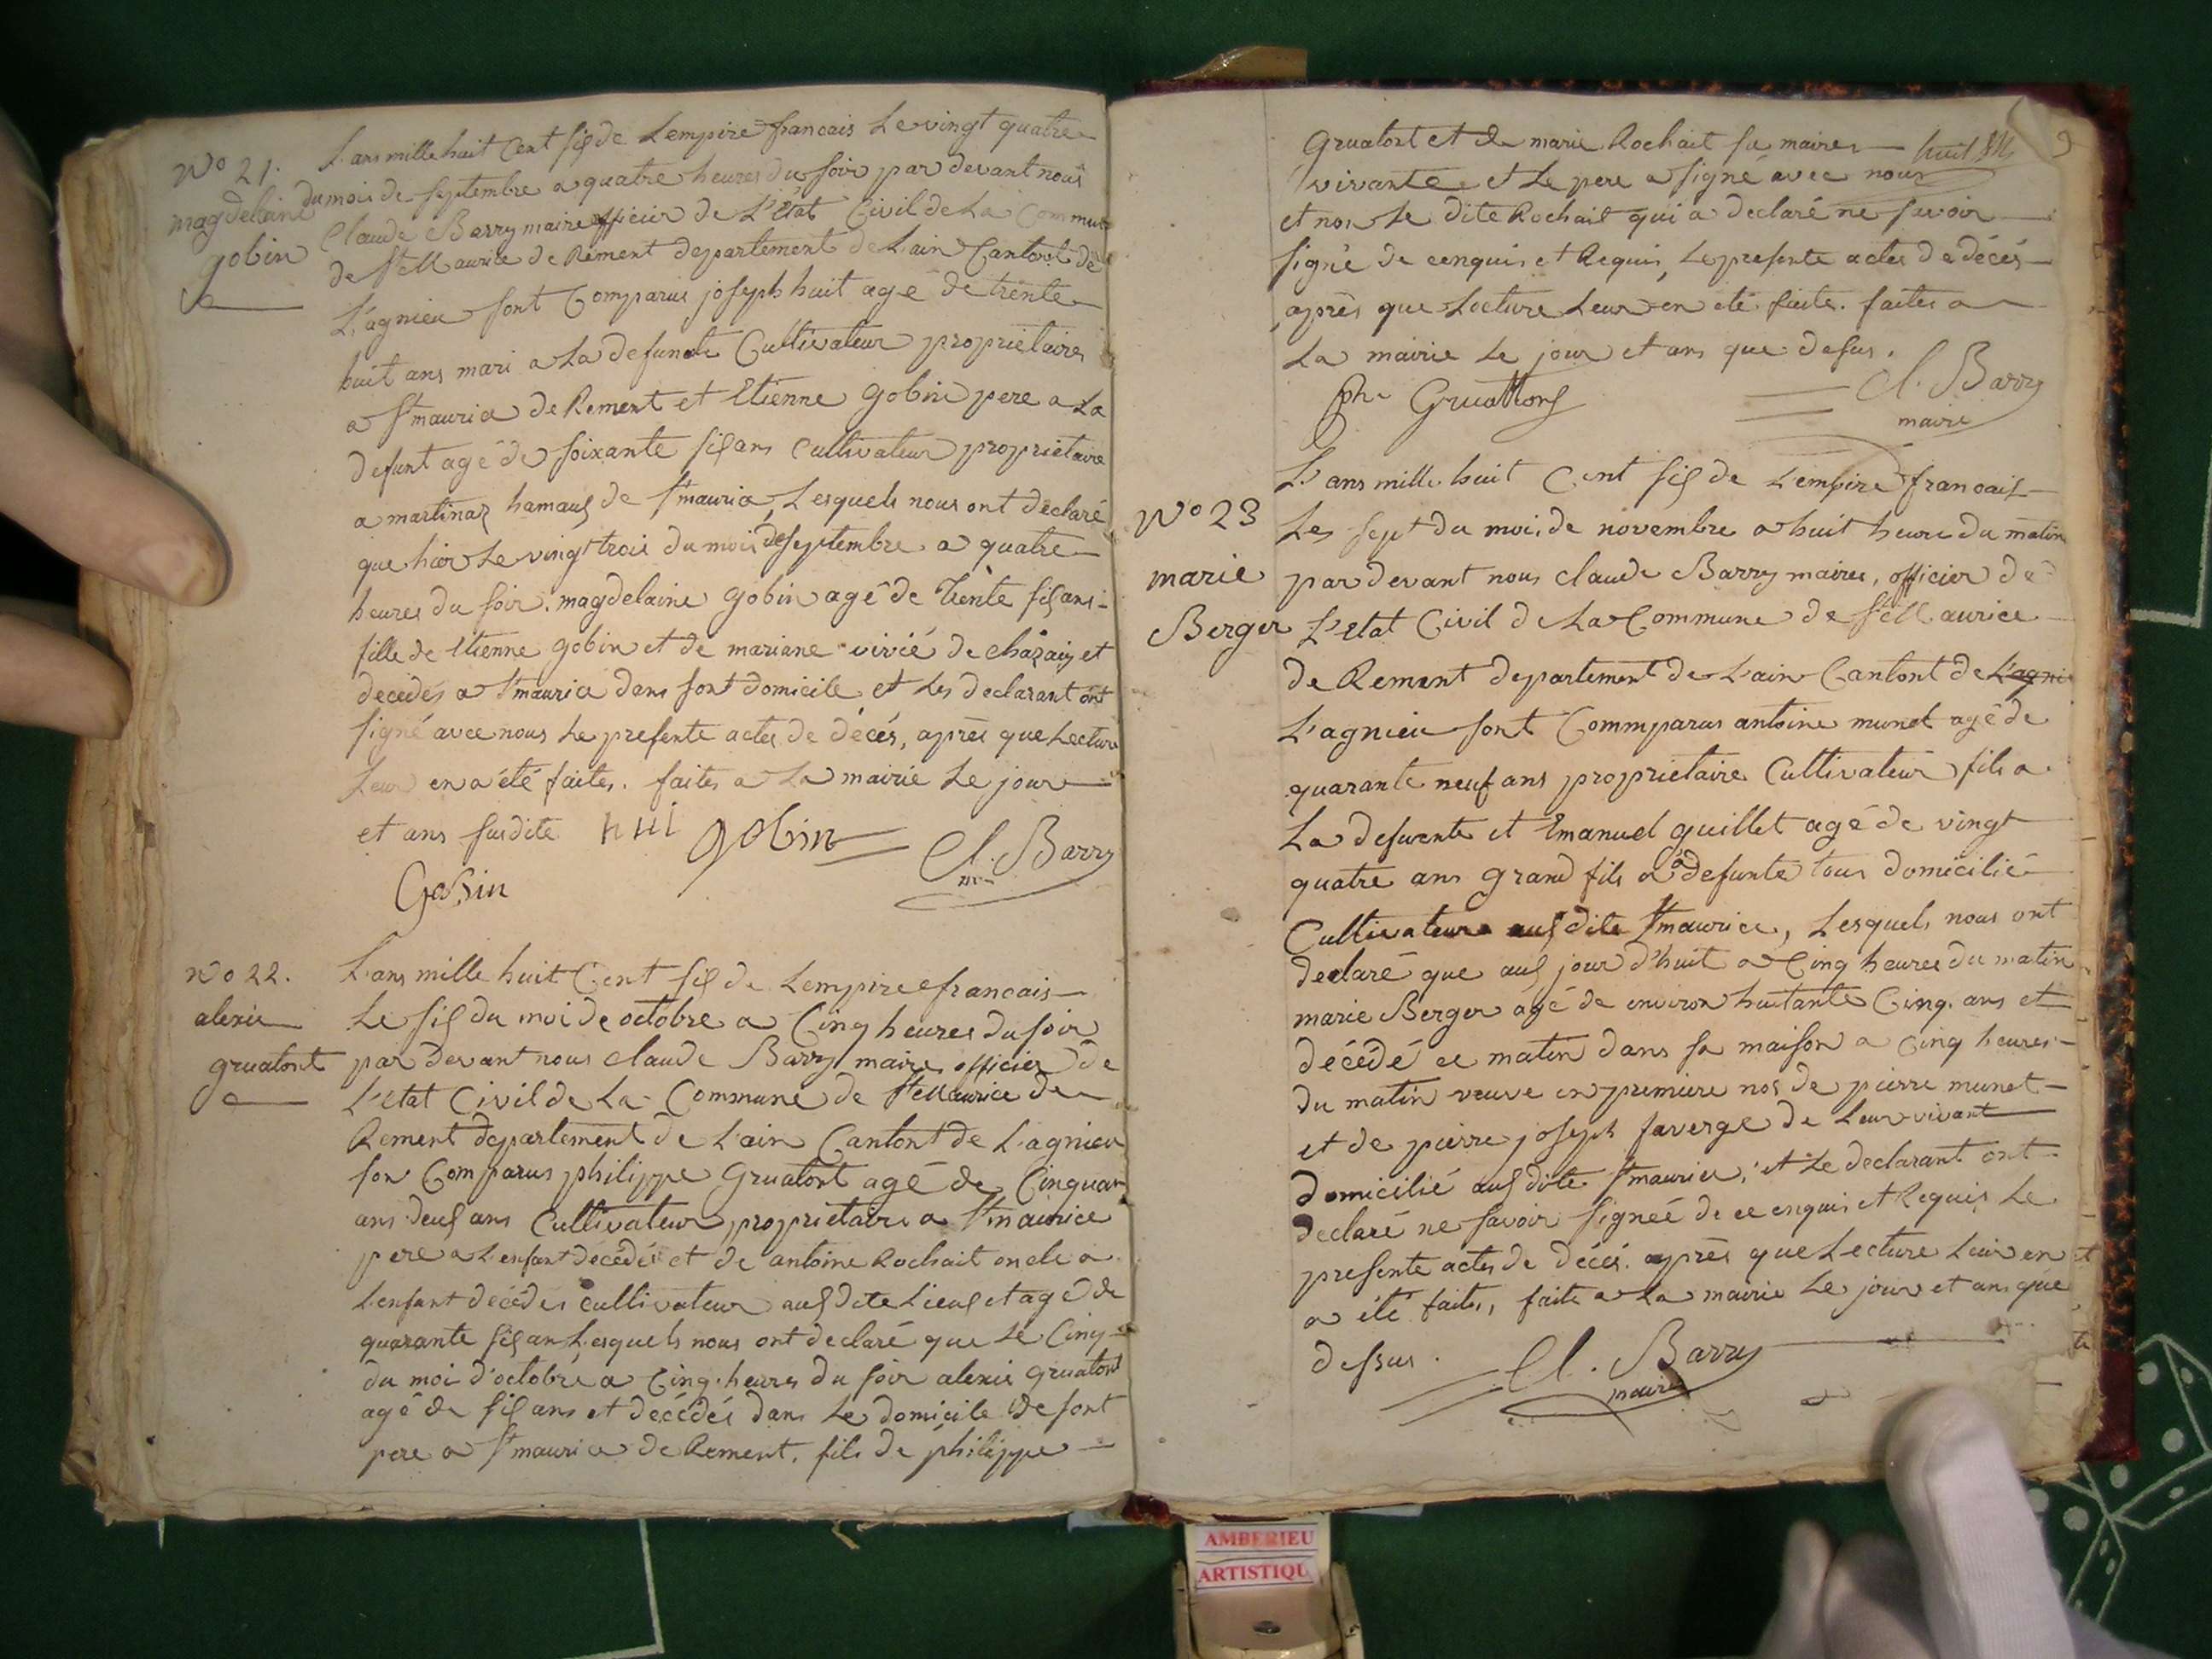 No 21.
magdelaine
gobin
L'ans mille huit Cent six de Lempire francais Le vingt quatre
du mois de septembre a quatre heures du soir par devant nous
Claude Barry maire officier de L'état Civil de La Commune
de St Maurice de Rement departement de L'ain Cantont de
L'agnieu sont Comparus joseph huit agé de trente
huit ans mari a La defunte Cultivateur proprietaire
a St maurice de Rement et Etienne gobin pere a La
defunt agé de soixante six ans Cultivateur proprietaire
a martinaz hamaux de St maurice, Lesquels nous ont declaré
que hier Le vingt trois du mois de septembre a quatre
heures du soir. magdelaine gobin agé de Trente six ans
fille de Etienne gobin et de mariane vivié de chazain et
decédés a St maurice dans sont domicile et Les declarant ont
signé avec nous Le presente actes de décés, après que Lecture
Leur en a été faites. faites a La mairie Le jour
et ans susdite gobin Cl. Barry
Gobin
No 22.
alexie
gruatont
L'ans mille huit Cent six de Lempire francais
Le six du moi de octobre a Cinq heures du soir
par devant nous Claude Barry maire officier de
L'etat Civil de La Commune de St Maurice de
Rement departement de L'ain Cantont de L'agnieu
son Comparus philippe Gruatont agé de Cinquan
ans deux ans Cultivateur proprietaire a St maurice
pere a L'enfant décédés et de antoine Rochait oncle a
L'enfant décédés cultivateur aux dite Lieux et agé de
quarante six an Lesquels nous ont declaré que Le Cinq
du moi d'octobre a Cinq heures du soir alexie gruatont
agé de six ans et décédés dans Le domicile de sont
pere a St maurice de Rement, fils de philippe
huit 9
Gruatont et de marie Rochait sa maire
vivante et Le pere a signé avec nous
et non Le dite Rochait qui a declaré ne savoir
signé de cenquis et Requis, Le presente actes de décés
après que Lecture Leur en été faite. faites a
La mairie Le jour et ans que desus.
Phe Gruattons Cl. Barry
maire
No 23
marie
Berger
L'ans mille huit Cent six de L'empire francais
Les sept du moi de novembre a huit heure du matin
par devant nous claude Barry maires, officier de
L'etat Civil de La Commune de St Maurice
de Rement departement de L'ain Cantont de L'agni
L'agnieu sont Commparus antoine munet agé de
quarante neuf ans proprietaire Cultivateur fils a
La defuente et Emanuel guillet agé de vingt
quatre ans grand fils a La defunte tous domicilié
Cultivateurs aux dite St maurice, Lesquels nous ont
declaré que aux jour d'huit a Cinq heures du matin
marie Berger agé de environ huitante Cinq ans et
décédé ce matin dans sa maison a Cinq heures
du matin veuve en premiere nos de pierre munet
et de pierre joseph faverge de Leur vivant
domicilié aux dite St maurice, et Le declarant ont
declaré ne savoir signeé de ce enquis et Requis Le
presente actes de décés. après que Lecture Leur en
a été faites, faite a La mairie Le jour et ans que
dessus. Cl. Barry
maire
AMBERIEU
ARTISTIQU